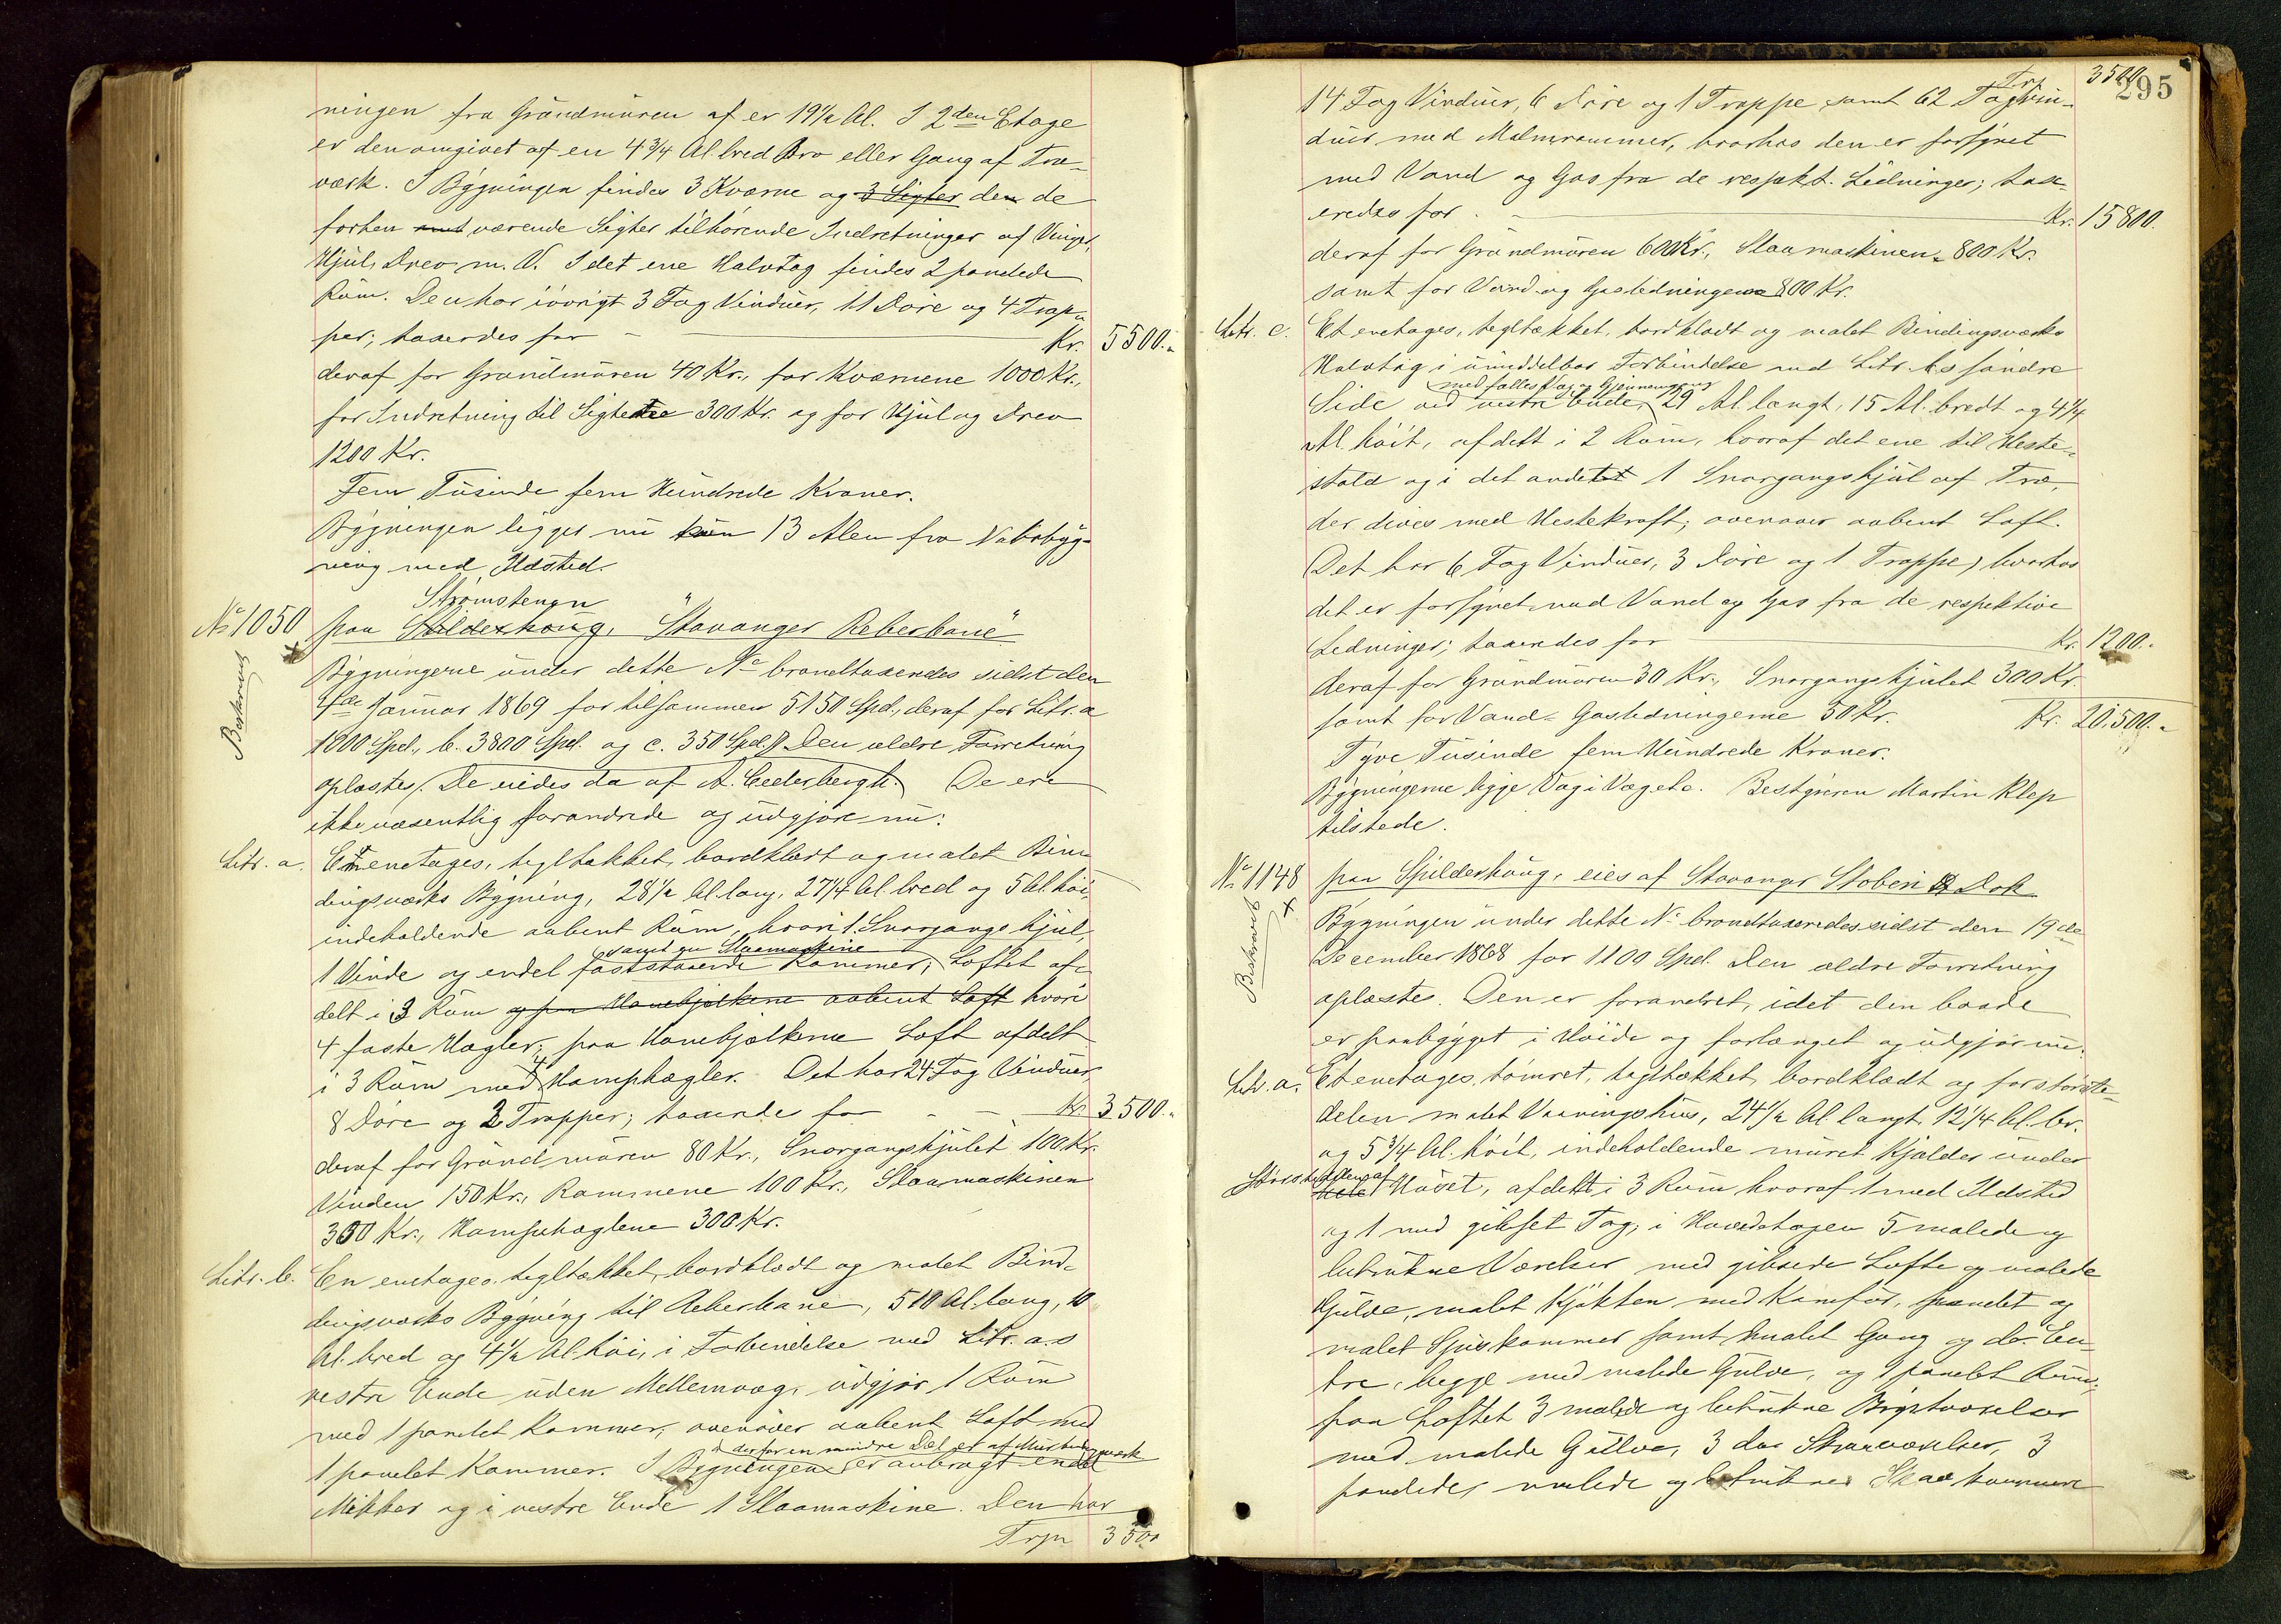 ningen fra Grundmuren af er 19½ Al. I 2den Etage
er den omgivet af en 4¾ Al. bred Bro eller Gang af Træ-
værk. I Bygningen findes 3 Kværne og 3 Sigter den de
forhen værende Sigter tilhørende Indretninger af Vinger,
Hjul, Drev m. V. I det ene Halvtag findes 2 panelede
Rum. Den har iøvrigt 3 Fag Vinduer, 11 Døre og 4 Trap-
per; taxerdes for - Kr. 5500.-
deraf for Grundmuren 40 Kr., for Kværnene 1000 Kr.,
for Indretning til Sigterne 300 Kr. og for Hjul og Drev
1200 Kr.
Fem Tusinde fem Hundrede Kroner.
Bygningen ligger nu kun 13 Alen fra Nabobyg-
ning med Ildsted.
Strømstengn
No 1050 paa Spilderhoug, "Stavanger Reberbane"
Beskrevet
Bygningerne under dette No brandtaxerdes sidst den
4de Januar 1869 for tilsammen 5150 Spd., deraf for Litr. a
1000 Spd., b. 3800 Spd. og c. 350 Spd. Den ældre Forretning
oplæstes. De eiedes da af A. Cederbergh. De ere
ikke væsentlig forandrede og udgjøre nu:
Litr. a. Et enetages, tegltækket, bordklædt og malet Bin-
dingsværks Bygning, 28½ Al. lang, 27¼ Al. bred og 5 Al. høi,
indeholdende aabent Rum, hvori 1 Snorgangshjul,
samt en Slaamaskine
1 Vinde og endel faststaaende Rammer; Loftet af-
delt i 3 Rum og paa Hanebjælkerne aabent Loft hvori
4 faste Hægler; paa Hanebjælkerne Loft afdelt
i 3 Rum med 4 Hamphægler. Det har 24 Fag Vinduer
8 Døre og 2 Trapper; taxerdes for - - Kr. 3500.-
deraf for Grundmuren 80 Kr., Snorgangshjulet 100 Kr.
Vinden 150 Kr., Rammene 100 Kr., Slaamaskinen
300 Kr., Hamphæglene 300 Kr.
Litr. b. En enetages. tegltækket, bordklædt og malet Bind-
dingsværks Bygning til Reberbane, 510 Al. lang, 10
Al. bred og 4½ Al. høi, i Forbindelse med Litr. a.s
vestre Ende uden Mellemvæg, udgjør 1 Rum
med 1 panelet Kammer, ovenover aabent Loft med
derfor en mindre Del er af Murbindingsværk
1 panelet Kammer. I Bygningen er anbragt endel
Mikker og i vestre Ende 1 Slaamaskine. Den har
Trp 3500
Trp 3500
295
14 Fag Vinduer, 6 Døre og 1 Trappe samt 62 Tagvin-
duer med Malmrammer, hvorhos den er forsynet
med Vand og Gas fra de respekt. Ledninger; tax-
eredes for - Kr. 15800.
deraf for Grundmuren 600 Kr., Slaamaskinen 800 Kr.
samt for Vand og Gasledningerne 800 Kr.
Litr. c. Et enetages, tegltækket, bordklædt og malet Bindingsværks
Halvtag i umiddelbar Forbindelse med Litr. b.s søndre
med fælles Væg og Gjennemgang
Side ved vestre Ende, 29 Al. langt, 15 Al. bredt og 4¼
Al. høit, afdelt i 2 Rum, hvoraf det ene til Heste-
stald og i det andet 1 Snorgangshjul af Træ,
der dives med Hestekraft; ovenover aabent Loft.
Det har 6 Fag Vinduer, 3 Døre og 1 Trappe, hvorhos
det er forsynet med Vand og Gas fra de respektive
Ledninger; taxerdes for Kr. 1200.-
deraf for Grundmuren 30 Kr., Snorgangshjulet 300 Kr.
samt for Vand- Gasledningerne 50 Kr. Kr. 20,500.-
Tyve Tusinde fem Hundrede Kroner.
Bygningerne ligge Væg i Væg etc. Bestyreren Martin Klep
tilstede.
No 1148 paa Spilderhaug, eies af Stavanger Støberi & Dok
Beskrevet
Bygningen under dette No brandtaxeredes sidst den 19de
December 1868 for 1100 Spd. Den ældre Forretning
oplæstes. Den er forandret, idet den baade
er paabygget i Høide og forlænget og udgjør nu:
Litr. a. Et enetages, tømret, tegltækket, bordklædt og for største-
delen malet Vaaningshus, 24½ Al. langt, 12¼ Al. br.
og 5¾ Al. høit, indeholdende muret Kjælder under
Størstedelen af
hele Huset, afdelt i 3 Rum hvoraf 1 med Ildsted
og 1 med gibset Tag; i Hovedetagen 5 malede og
betrukne Værelser med gibsede Lofte og malede
Gulve, malet Kjøkken med Komfur, panelet og
malet Spiskammer samt malet Gang og do. En-
tre, begge med malede Gulve, og 1 panelet Rum;
paa Loftet 3 malede og betrukne Kvistværelser
med malede Gulve, 3 do. Skraaværelser, 3
panelede, malede og betrukne Skraakammere